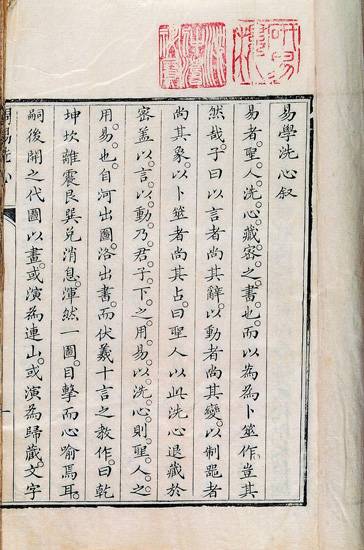 易學洗心叙
易者。聖人。洗心。藏密。之書也。而以為為卜筮作。豈其
然哉。子曰以言者尚其辭。以動者尚其變。以制器者
尚其象。以卜筮者尚其占。曰聖人以此洗心退藏於
密。蓋以言。以動。乃君子。下之。用易。以洗心。則聖人。之
用易。也。自河出圖。洛出書。而伏羲十言之教作。曰乾
坤坎離震艮巽兌消息。渾然一圖。目擊而心喻焉耳。
嗣後開之代圖以畫。或演為連山。或演為歸藏。文字